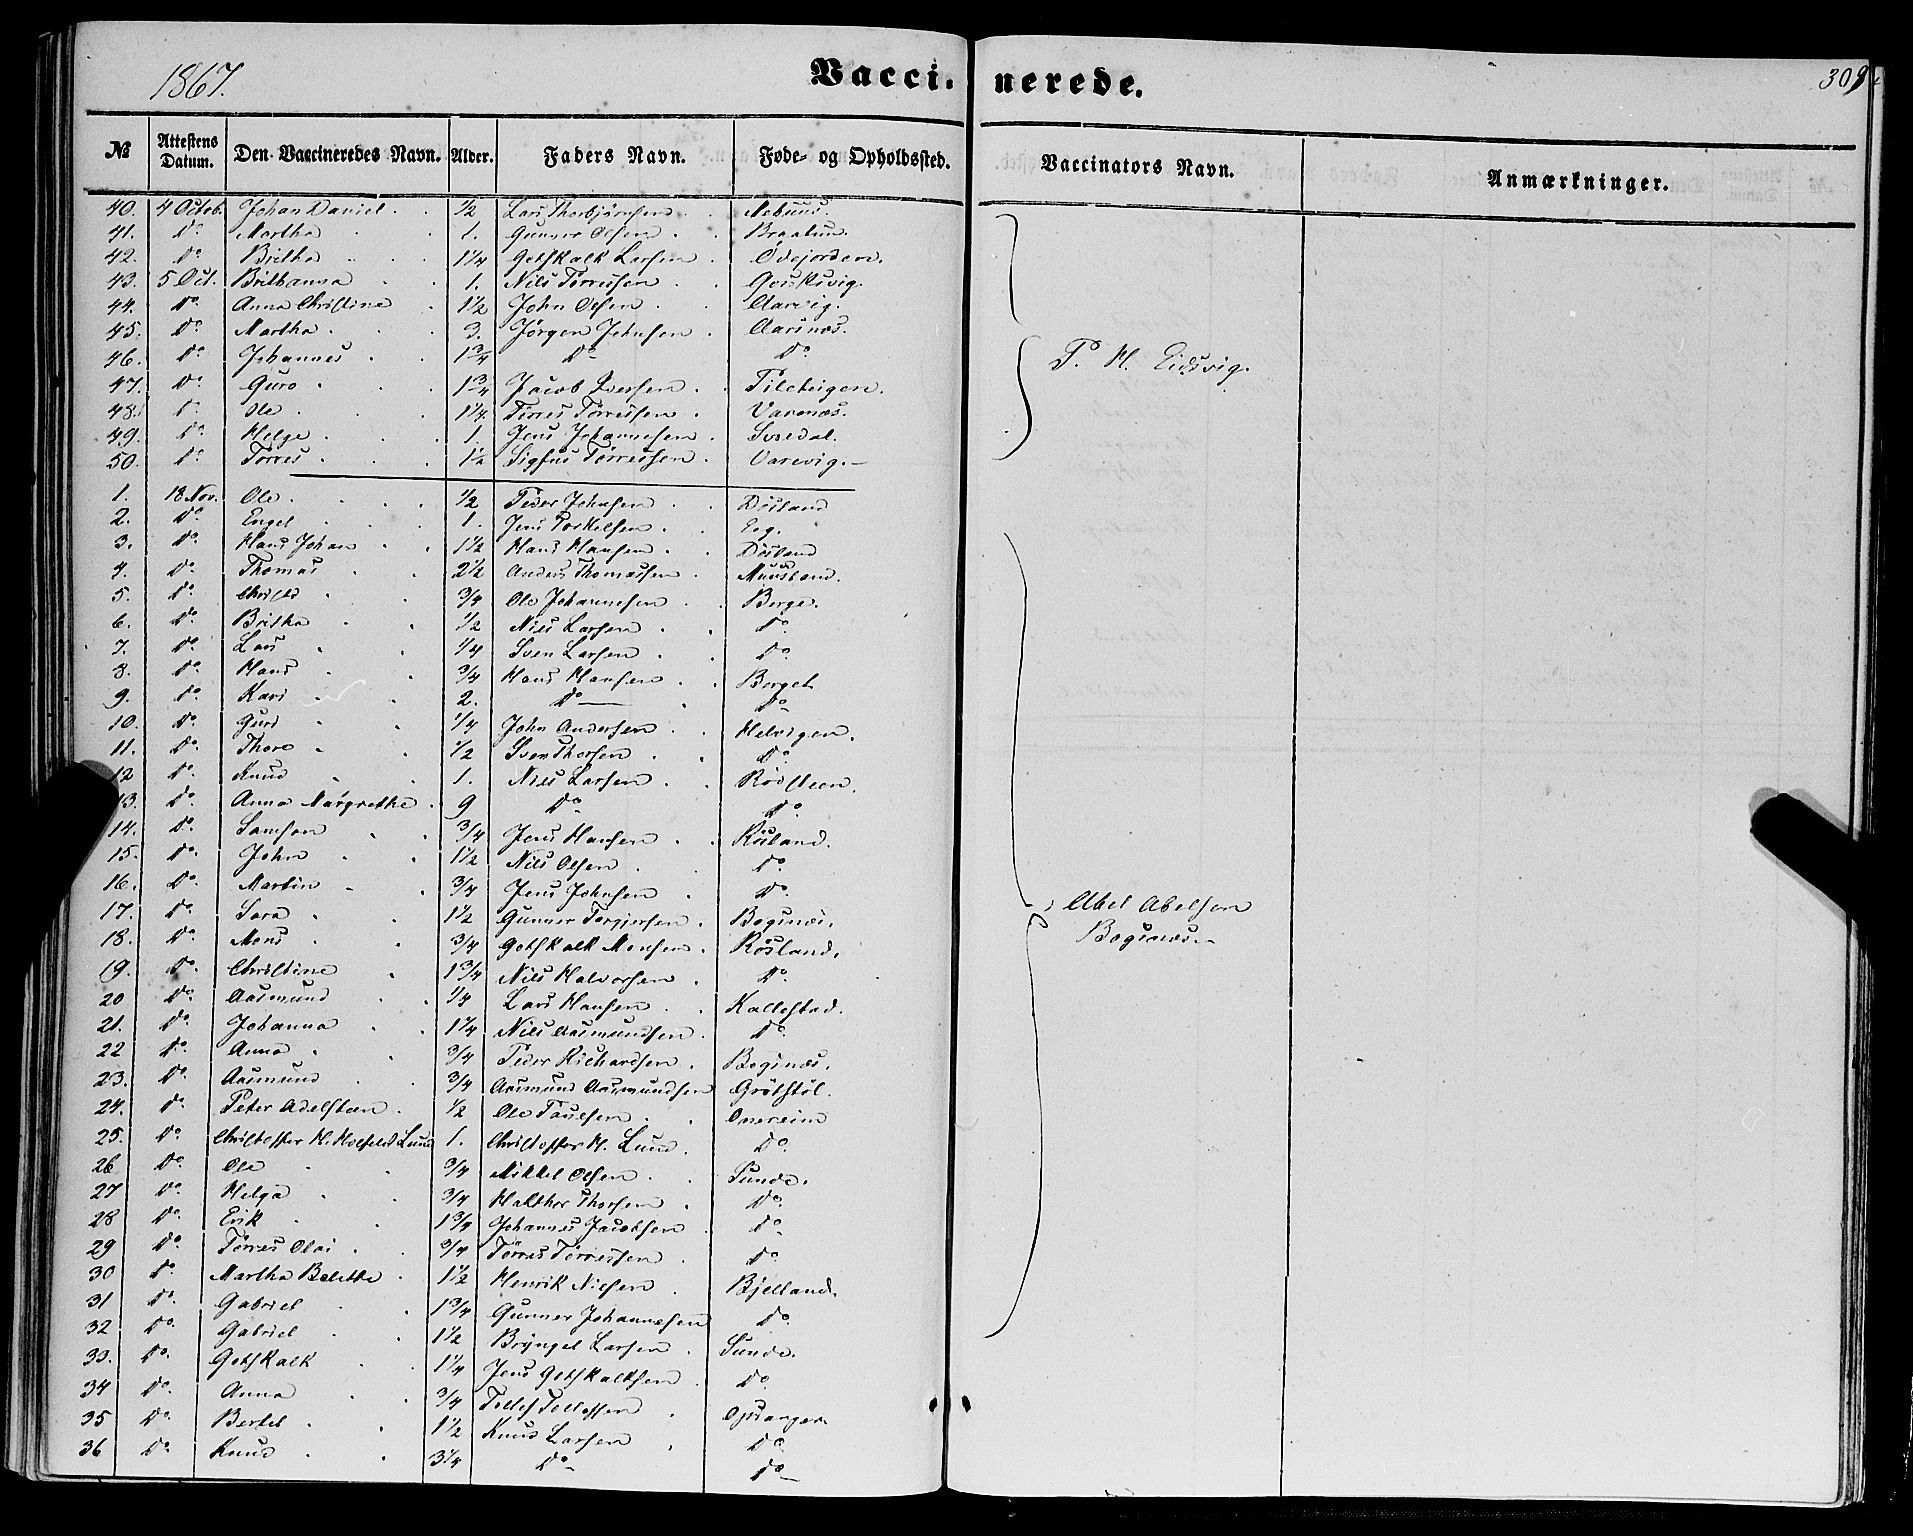 1867.
Vaccinerede.
309
№ Attestens Datum. Den Vaccineredes Navn. Alder. Faders Navn. Føde- og Opholdssted. Vaccinators Navn. Anmærkninger.
40. 4 Octob. Johan Daniel 1/2 Lars Thorbjørnsen
41. Do Martha 1. Gunner Olsen
42. Do Britha 1 1/4 Gotskalk Larsen Ødejorden.
43. 5 Oct. Brithanna 1. Nils Tørresen
44. Do Anna Christine 1 1/2 John Olsen Aarvig.
45. Do Martha 3. Jørgen Johnsen Aarsnæs.
46. Do Johannes 1 3/4 Do Do
T. H. Eidsvig.
47. Do Guro 1 3/4 Jacob Iversen
48. Do Ole 1 1/4 Tørres Tørressen Varenæs.
49. Do Helge 1. Jens Johannesen
50. Do Tørres 1 1/2 Sigfus Tørressen Varevig.
1. 18 Nov. Ole 1/2 Peder Johnsen Døsland
2. Do Engel 1. Jens Torkelsen Eeg.
3. Do Hans Johan 1 1/2 Hans Hansen Døsland
4. Do Thomas 2 1/2 Anders Thomassen
5. Do 3/4 Ole Johannesen Berge.
6. Do Britha 1/2 Nils Larsen Do
7. Do Lars 1/4 Sven Larsen Do
8. Do Hans 3/4 Hans Hansen Berget
9. Do Kari 2. Do Do
10. Do Guri 1/4 John Andersen Helvigen.
11. Do Thore 1/2 Sven Thorsen Do
12 Do Knud 1. Nils Larsen Rødsteen.
13. Do Anna Margrethe 9 Do Do
14. Do Samson 3/4 Jens Hansen Røsland.
15. Do John 1 1/2 Nils Olsen Do
16. Do Martin 3/4 Jens Johnsen Do
17. Do Sara 1 1/2 Gunner Torgjersen Bogsnæs.
Abel Abelsen
Bogsnæs.
18. Do Mons 3/4 Gotskalk Monsen Røsland.
19. Do Christine 1 3/4 Nils Halvorsen Do
20 Do Aasmund 1/4 Lars Hansen Kallestad.
21. Do Johanna 1 1/4 Nils Aasmundsen Do
22 Do Anna 3/4 Peder Richardsen Bogsnæs.
23. Do Aasmund 3/4 Aasmund Aasmundsen Grøtstøl.
24. Do Peter Adelsteen 1/2 Ole Paulsen Omreim
25. Do Christoffer H. Lund 1. Christoffer H. Lund Do
26 Do Ole 3/4 Mikkel Olsen Sunde.
27 Do Helga 3/4 Halthor Thorsen Do
28 Do Erik 1 3/4 Johannes Jacobsen Do
29 Do Tørres Olai 3/4 Tørres Tørressen Do
30 Do Martha Bolette 1 1/2 Henrik Nielsen Bjelland.
31 Do Gabriel 1 3/4 Gunner Johannesen Do
32 Do Gabriel 1 1/2 Bryngel Larsen Sunde.
33. Do Gotskalk 1 1/4 Jens Gotskalksen Do
34 Do Anna 3/4 Tollef Tollefsen Opsanger
35 Do Bertel 1 1/2 Knud Larsen Do
36 Do Knud 3 1/4 Do Do